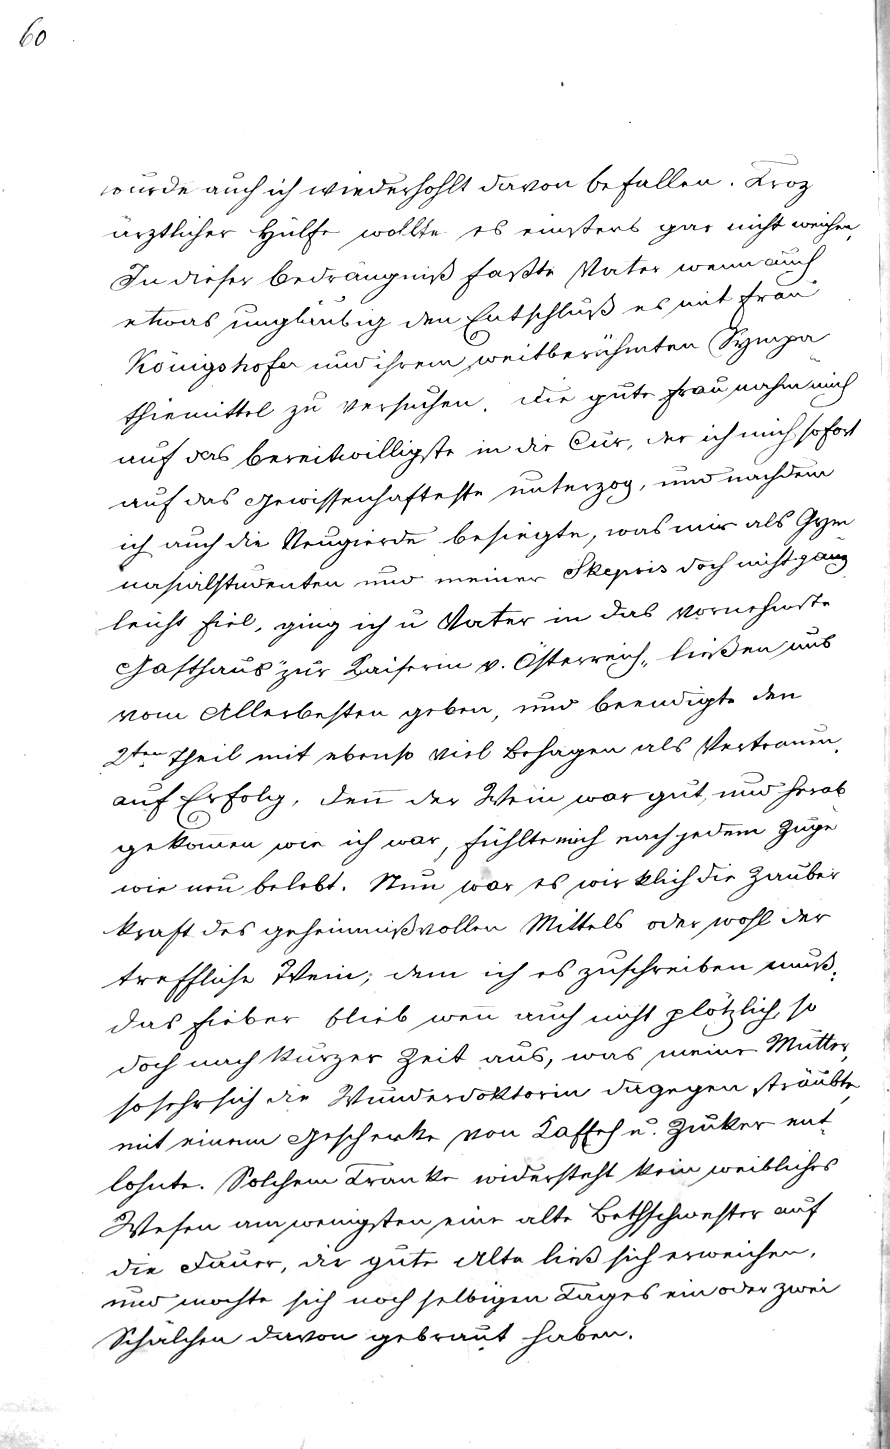 60
wurde auch ich wiederhohlt davon befallen. Troz
ärztlicher Hülfe wollte es einstens gar nicht weichen,
In dieser Bedrängniß faßte Vater wenn auch
etwas ungläubig den Entschluß es mit Frau
Königshofer und ihrem weitberühmten Sympa
thiemittel zu versuchen. Die gute Frau nahm mich
auf das bereitwilligste in die Cur, der ich mich sofort
auf das gewissenhafteste unterzog, und nachdem
ich auch die Neugierde besiegte, was mir als Gym
nasialstudenten und meiner Skepsis doch nicht ganz
leicht fiel, ging ich u Vater in das vornehmste
Gasthaus "zur Kaiserin v. Österreich„ ließen uns
vom Allerbesten geben, und beendigte den
2ten Theil mit ebenso viel Behagen als Vertrauen
auf Erfolg, den̄ der Wein war gut, und herab
gekom̄en wie ich war, fühlte mich nach jedem Zuge
wie neu belebt. Nun war es wirklich die Zauber
kraft des geheimnißvollen Mittels oder wohl der
treffliche Wein, dem ich es zuschreiben muß.
das Fieber blieb wen̄ auch nicht plötzlich, so
doch nach kurzer Zeit aus, was meine Mutter,
so sehr sich die Wunderdoktorin dagegen sträubte,
mit einem Geschenke von Kaffeh u. Zuker ent
lohnte. Solchem Tranke widersteht kein weibliches
Wesen am wenigsten eine alte Bethschwester auf
die Dauer, die gute Alte ließ sich erweichen,
und mochte sich noch selbigen Tages ein oder zwei
Schälchen davon gebraut haben.